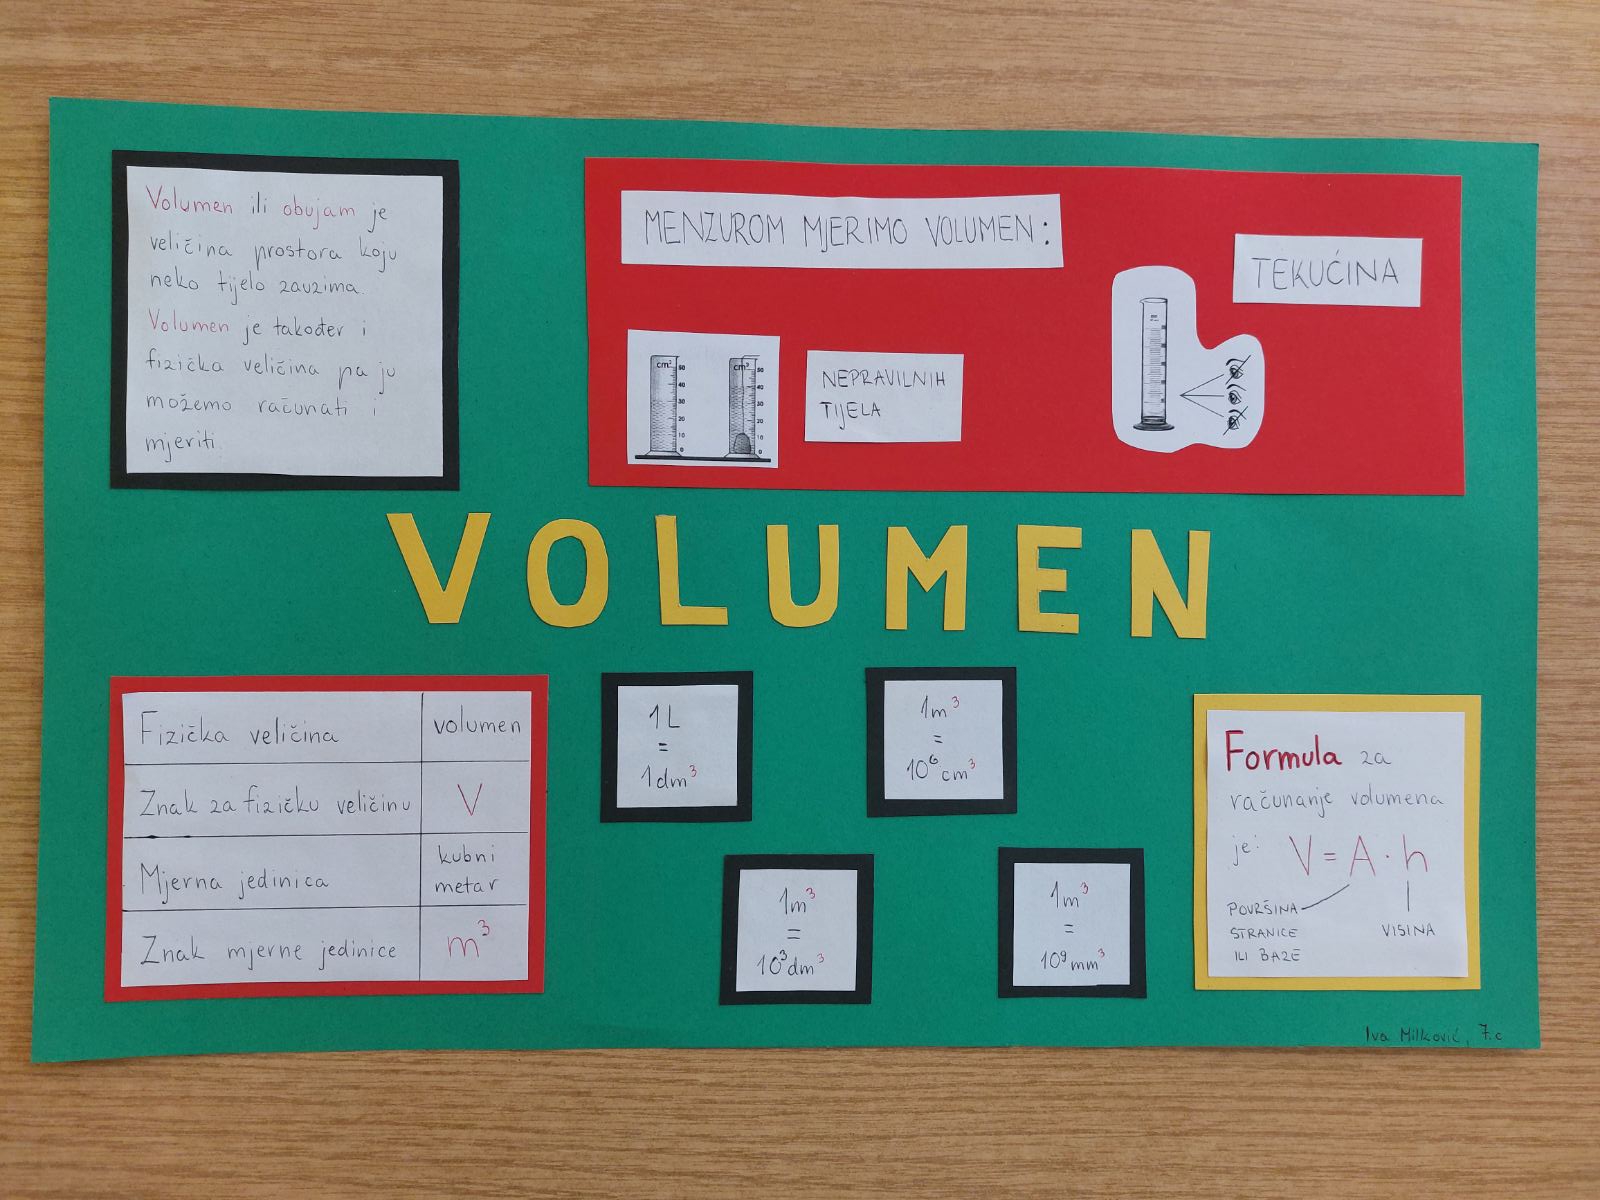 Volumen ili obujam je
veličina prostora koju
neko tijelo zauzima.
Volumen je također i
fizička veličina pa ju
možemo računati i
mjeriti.
MENZUROM MJERIMO VOLUMEN:
TEKUĆINA
cm³
50
40
30
20
10
0
cm³
50
40
30
20
10
0
NEPRAVILNIH
TIJELA
VOLUMEN
Fizička veličina volumen
Znak za fizičku veličinu V
Mjerna jedinica kubni metar
Znak mjerne jedinice m³
1L
=
1dm³
1m³
=
10⁶cm³
1m³
=
10³dm³
1m³
=
10⁹mm³
Formula za
računanje volumena
je: V=A·h
POVRŠINA
STRANICE
ILI BAZE
VISINA
Iva Milković, 7.c